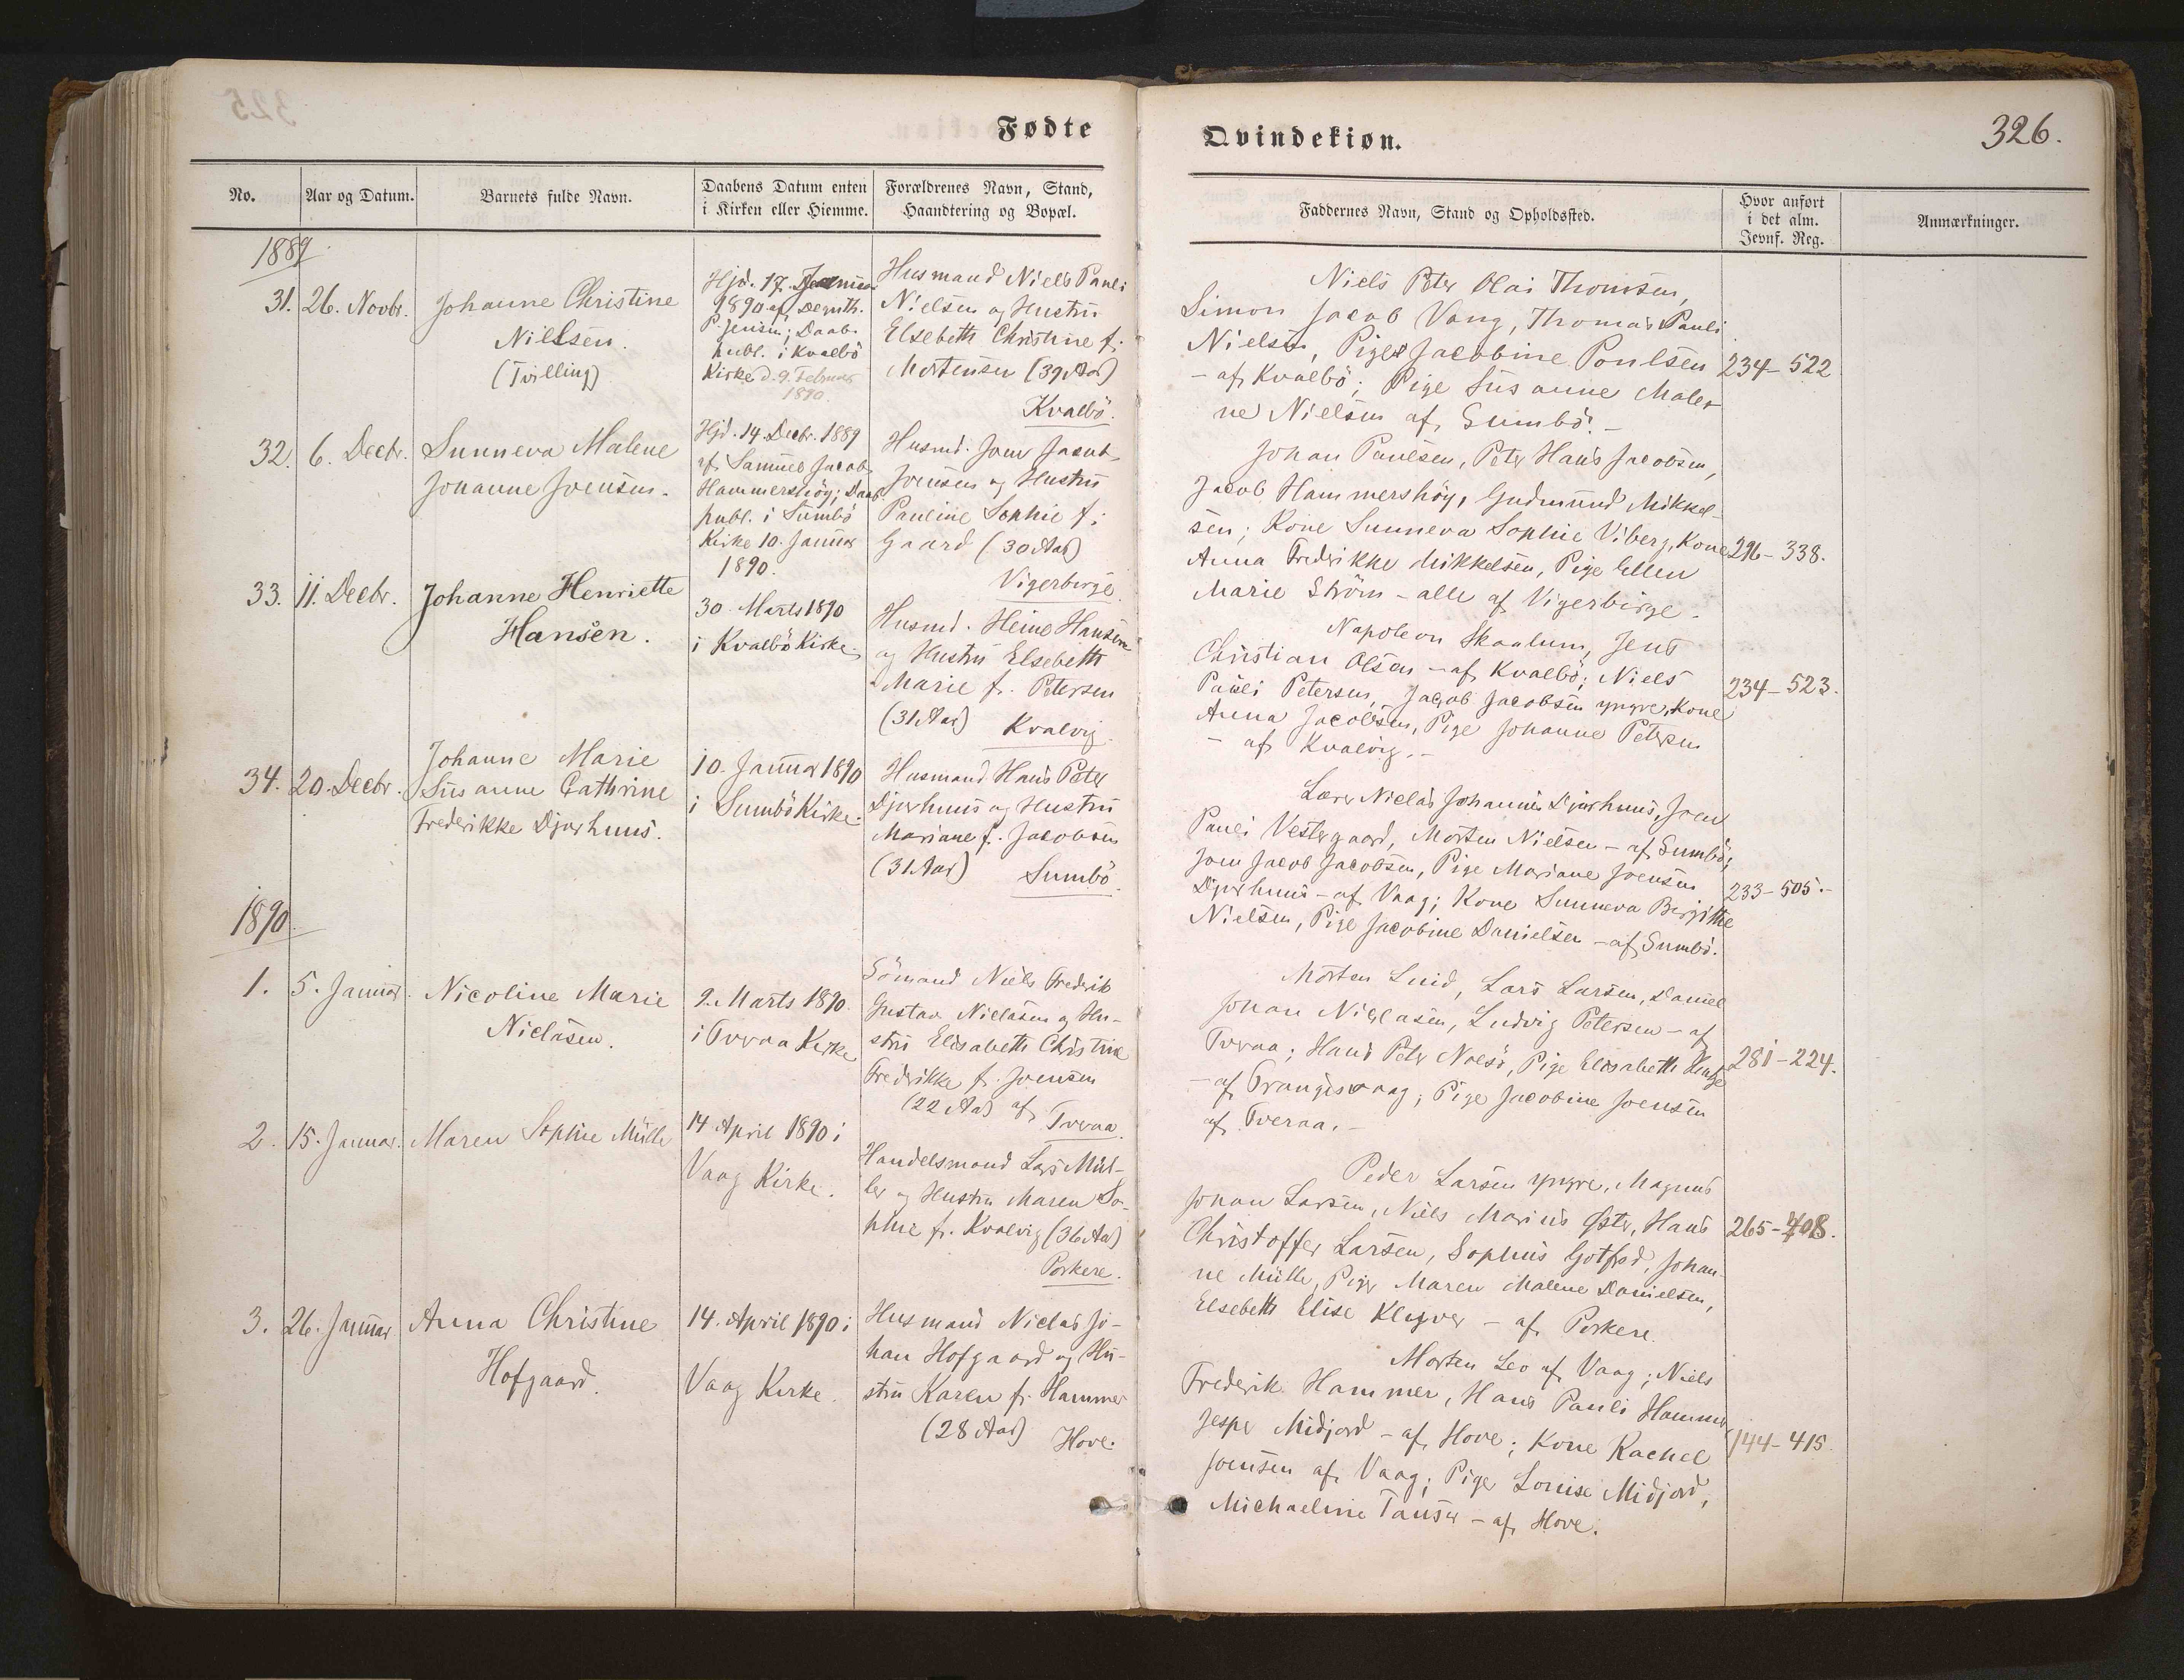 Fødte
Qvindekiøn.
326.
No.
Aar og Datum.
Barnets fulde Navn.
Daabens Datum enten
i Kirken eller Hiemme.
Forældrenes Navn, Stand,
Haandtering og Bopæl.
Faddernes Navn, Stand og Opholdssted.
Hvor anført
i det alm.
Jevnf. Reg.
Anmærkninger.
1889
31.
26. Novbr.
Johanne Christine
Nielsen.
(Tvilling)
Hjd. 17. Januar
1890 af Degnth.
P. Jensen; Daab.
publ. i Kvalbö
Kirke d. 9. Februar
1890.
Husmand Niels Pauli
Nielsen og Hustru
Elsebeth Christine f.
Mortensen (39 Aar)
Kvalbö.
Niels Peter Olai Thomsen,
Simon Jacob Vang, Thomas Pauli
Nielsen, Pige Jacobine Poulsen
- af Kvalbö; Pige Susanne Male-
ne Nielsen af Sumbö. -
234-522
32.
6. Decbr.
Sunneva Malene
Johanne Joensen.
Hjd. 14. Decbr. 1889
af Samuel Jacob
Hammershög; Daab.
publ. i Sumbö
Kirke 10. Januar
1890.
Husmd. Joen Jacob
Joensen og Hustru
Pauline Sophie f.
Gaard (30 Aar)
Vigerbirge.
Johan Poulsen, Peter Hans Jacobsen,
Jacob Hammershög, Gudmund Mikkel-
sen; Kone Sunneva Sophie Viberg, Kone
Anna Fredrikke Mikkelsen, Pige Ellen
Marie Ström - alle af Vigerbirge. -
296-338.
33.
11. Decbr.
Johanne Henriette
Hansen.
30. Marts 1890
i Kvalbö Kirke.
Husmd. Heine Hansen
og Hustru Elsebeth
Marie f. Petersen
(31 Aar) Kvalvig.
Napoleon Skaalum, Jens
Christian Olsen - af Kvalbö; Niels
Pauli Petersen, Jacob Jacobsen yngre, Kone
Anna Jacobsen, Pige Johanne Petersen
- af Kvalvig. -
234-523.
34.
20. Decbr.
Johanne Marie
Susanne Cathrine
Frederikke Djurhuus.
10. Januar 1890
i Sumbö Kirke.
Husmand Hans Peter
Djurhuus og Hustru
Mariane f. Jacobsen
(31 Aar) Sumbö.
Lærer Niclas Johannes Djurhuus, Joen
Pauli Vestergaard, Morten Nielsen - af Sumbö;
Joen Jacob Jacobsen, Pige Mariane Joensen
Djurhuus - af Vaag; Kone Sunneva Birgitte
Nielsen, Pige Jacobine Danielsen - af Sumbö.
233-505.-
1890.
1.
5. Januar.
Nicoline Marie
Niclasen.
9. Marts 1890.
i Tveraa Kirke
Sömand Niels Fredrik
Gustav Niclasen og Hu-
stru Elisabeth Christine
Fredrikke f. Joensen
(22 Aar) af Tveraa.
Morten Luid, Lars Larsen, Daniel
Johan Niclasen, Ludvig Petersen - af
Tveraa; Hans Peter Nolsö, Pige Elisabeth
- af Trangisvaag; Pige Jacobine Joensen
af Tveraa. -
281-224.
2.
15. Januar.
Maren Sophie Müller
14 April 1890 i
Vaag Kirke.
Handelsmand Lars Mül-
ler og Hustru Maren So-
phie f. Kvalvig (36 Aar)
Porkere.
Peder Larsen yngre, Magnus
Johan Larsen, Niels Marius Øster, Hans
Christoffer Larsen, Sophus Gotfred, Johan-
ne Müller, Pige Maren Malene Danielsen,
Elsebeth Elise Kleyver - af Porkere.
265-408.
3.
26. Januar
Anna Christine
Hofgaard.
14. April 1890 i
Vaag Kirke.
Husmand Niclas Jo-
han Hofgaard og Hu-
stru Karen f. Hammer
(28 Aar) Hove.
Morten Leo af Vaag; Niels
Frederik Hammer, Hans Pauli Hammer,
Jesper Midjord - af Hove; Kone Rachel
Joensen af Vaag; Pige Louise Midjord,
Michaeline Tausen - af Hove.
144-415.